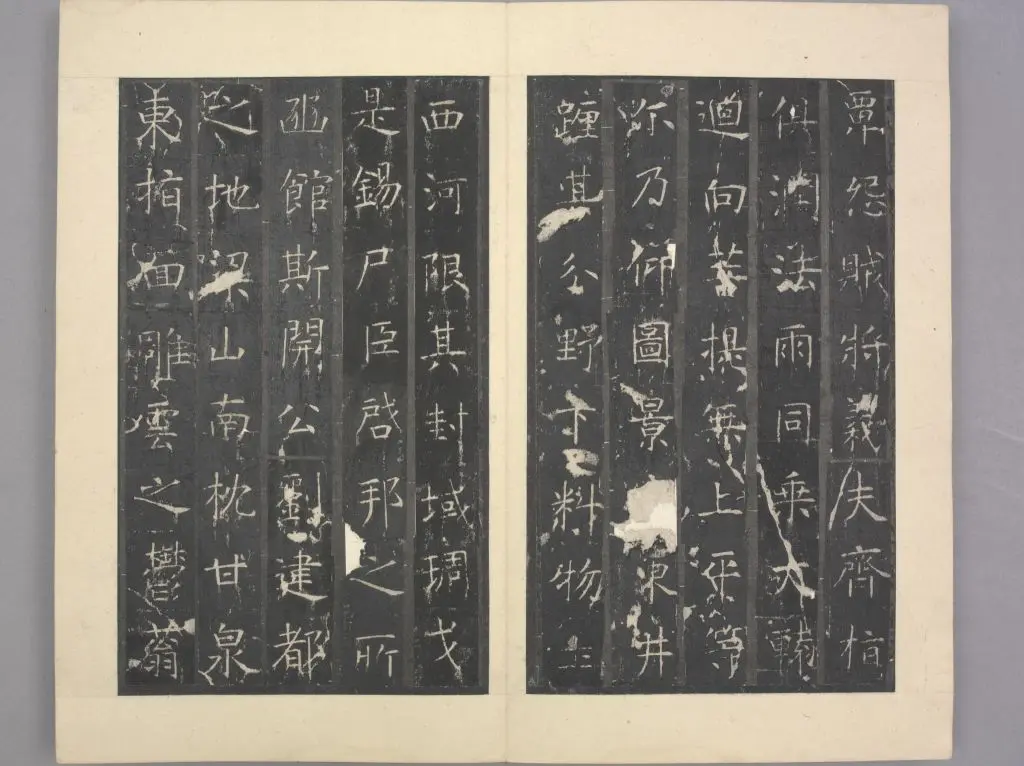 覃怨賊將義夫齊指
俱潤法雨同乘大輅
迴向菩提無上平等
尒乃仰圖景東井
躔其分野下料物土
西河限其封域琱戈
是錫尸臣啓邦之所
豳館斯開公劉建都
之地梁山南枕甘泉
東指雕雲之鬱蓊